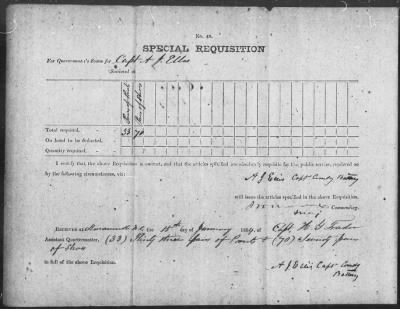 No. 40.
SPECIAL REQUISITION
For Quartermaster's Stores for Capt A J Ellis
Stationed at
Pair of Shoes
Total required, 33 70
On hand to be deducted,
Quantity required,
I certify that the above Requisition is correct, and that the articles specified are absolutely requisite for the public service, rendered so
by the following circumstances, viz:
A J Ellis Capt Comdg Battery
will issue the articles specified in the above Requisition.
Commanding.
Received at N C the 18th day of January 186 , of Capt H G
Assistant Quartermaster, (33) Thirty three pair of Pants & (70) Seventy pair
of Shoes
in full of the above Requisition.
A J Ellis Capt Comdg
Battery